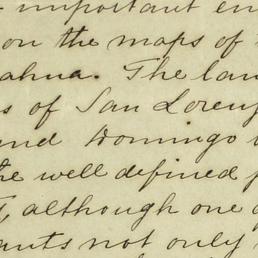 important en
on the maps of
ahua. The lan
s of San Loren
and Domingo
the well defined
, although one
ants not only